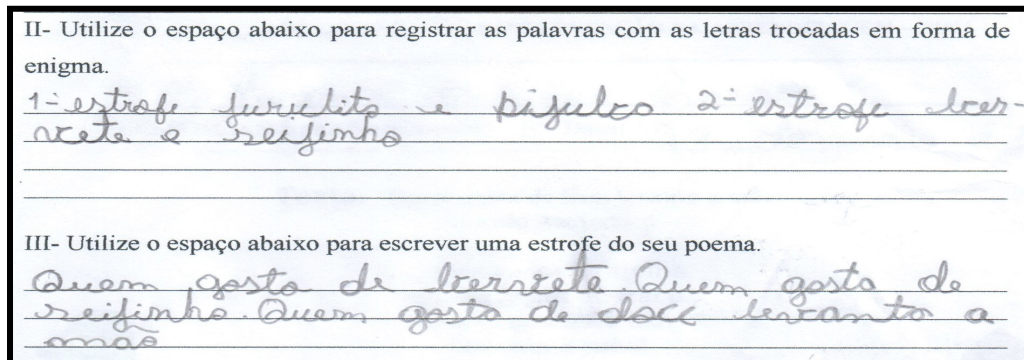 II- Utilize o espaço abaixo para registrar as palavras com as letras trocadas em forma de
enigma.
1ª estrofe e 2ª estrofe
e seifinho
III- Utilize o espaço abaixo para escrever uma estrofe do seu poema.
Quem gosta de Quem gosta de
seifinho. Quem gosta de doce levanta a
mão